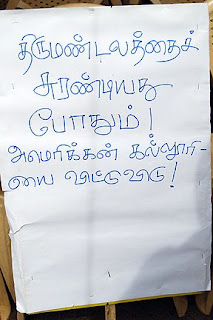 திருமண்டலத்தைச்
சுரண்டியது
போதும்!
அமெரிக்கன் கல்லூரி-
யை விட்டுவிடு!